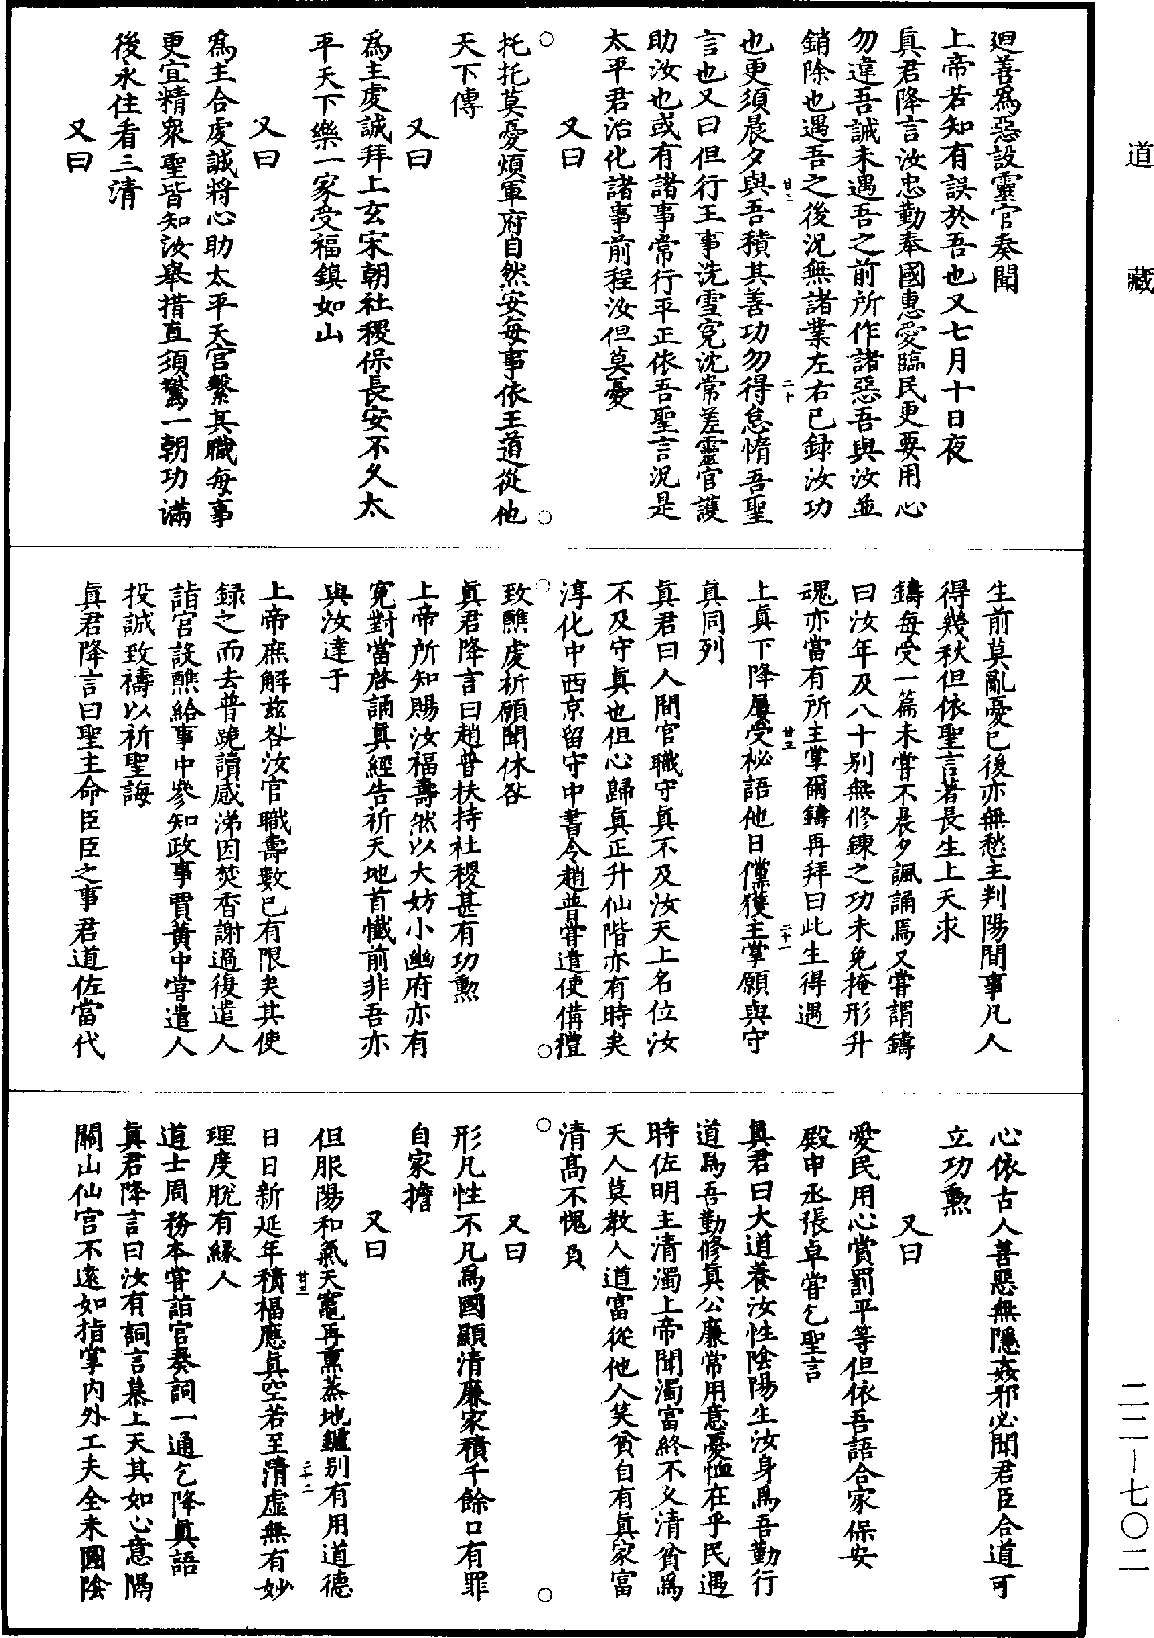 道藏
迴善爲惡設靈官奏聞
上帝若知有誤於吾也又七月十日夜
真君降言汝忠勤奉國惠愛臨民更要用心
勿違吾誠未遇吾之前所作諸惡吾與汝並
銷除也遇吾之後況無諸業左右已錄汝功
也更須晨夕與吾積其善功勿得怠惰吾聖
言也又曰但行王事洗雪冤沈常差靈官護
助汝也或有諸事常行平正依吾聖言況是
太平君治化諸事前程汝但莫憂
又曰
托托莫憂煩軍府自然安每事依王道從他
天下傳
又曰
爲主虔誠拜上玄宋朝社稷保長安不久太
平天下樂一家受福鎮如山
又曰
爲主合虔誠將心助太平天官繫其職每事
更宜精衆聖皆知汝舉措直須驚一朝功滿
後永住看三清
又曰
生前莫亂憂已後亦無愁主判陽間事凡人
得幾秋但依聖言著長生上天求
鑄每受一篇未嘗不晨夕諷誦焉又嘗謂鑄
曰汝年及八十別無修鍊之功未免掩形升
魂亦當有所主掌爾鑄再拜曰此生得遇
上真下降屢受祕語他日儻獲主掌願與守
真同列
真君曰人間官職守真不及汝天上名位汝
不及守真也但心歸真正升仙階亦有時矣
淳化中西京留守中書令趙普嘗遣使備禮
致醮虔祈願聞休咎
真君降言曰趙普扶持社稷甚有功勳
上帝所知賜汝福壽然以大妨小幽府亦有
冤對當啓誦真經告祈天地首懺前非吾亦
與汝達于
上帝庶解兹咎汝官職壽數已有限矣其使
録之而去普跪讀感涕因焚香謝過復遣人
詣官設醮給事中參知政事賈黃中嘗遣人
投誠致禱以祈聖誨
真君降言曰聖主命臣臣之事君道佐當代
心依古人善惡無隱姦邪必聞君臣合道可
立功勲
又曰
愛民用心賞罰平等但依吾語合家保安
殿中丞張卓嘗乞聖言
真君曰大道養汝性陰陽生汝身爲吾勤行
道爲吾勤修真公廉常用意憂恤在乎民遇
時佐明主清濁上帝聞濁富終不义清貧爲
天人莫教人道富從他人笑貧自有真家富
清高不愧貟
又曰
形凡性不凡爲國顯清廉家積千餘口有罪
自家擔
又曰
但服陽和氣天竈再熏蒸地鑪別有用道德
日日新延年積福應真空若至清虛無有妙
理度脫有緣人
道士周務本嘗詣官奏詞一通乞降真語
真君降言曰汝有詞言慕上天其如心意隔
關山仙宮不遠如指掌內外工夫全未圓陰
廿二
二十
廿三
二十一
廿三
二十二
二二—七〇二